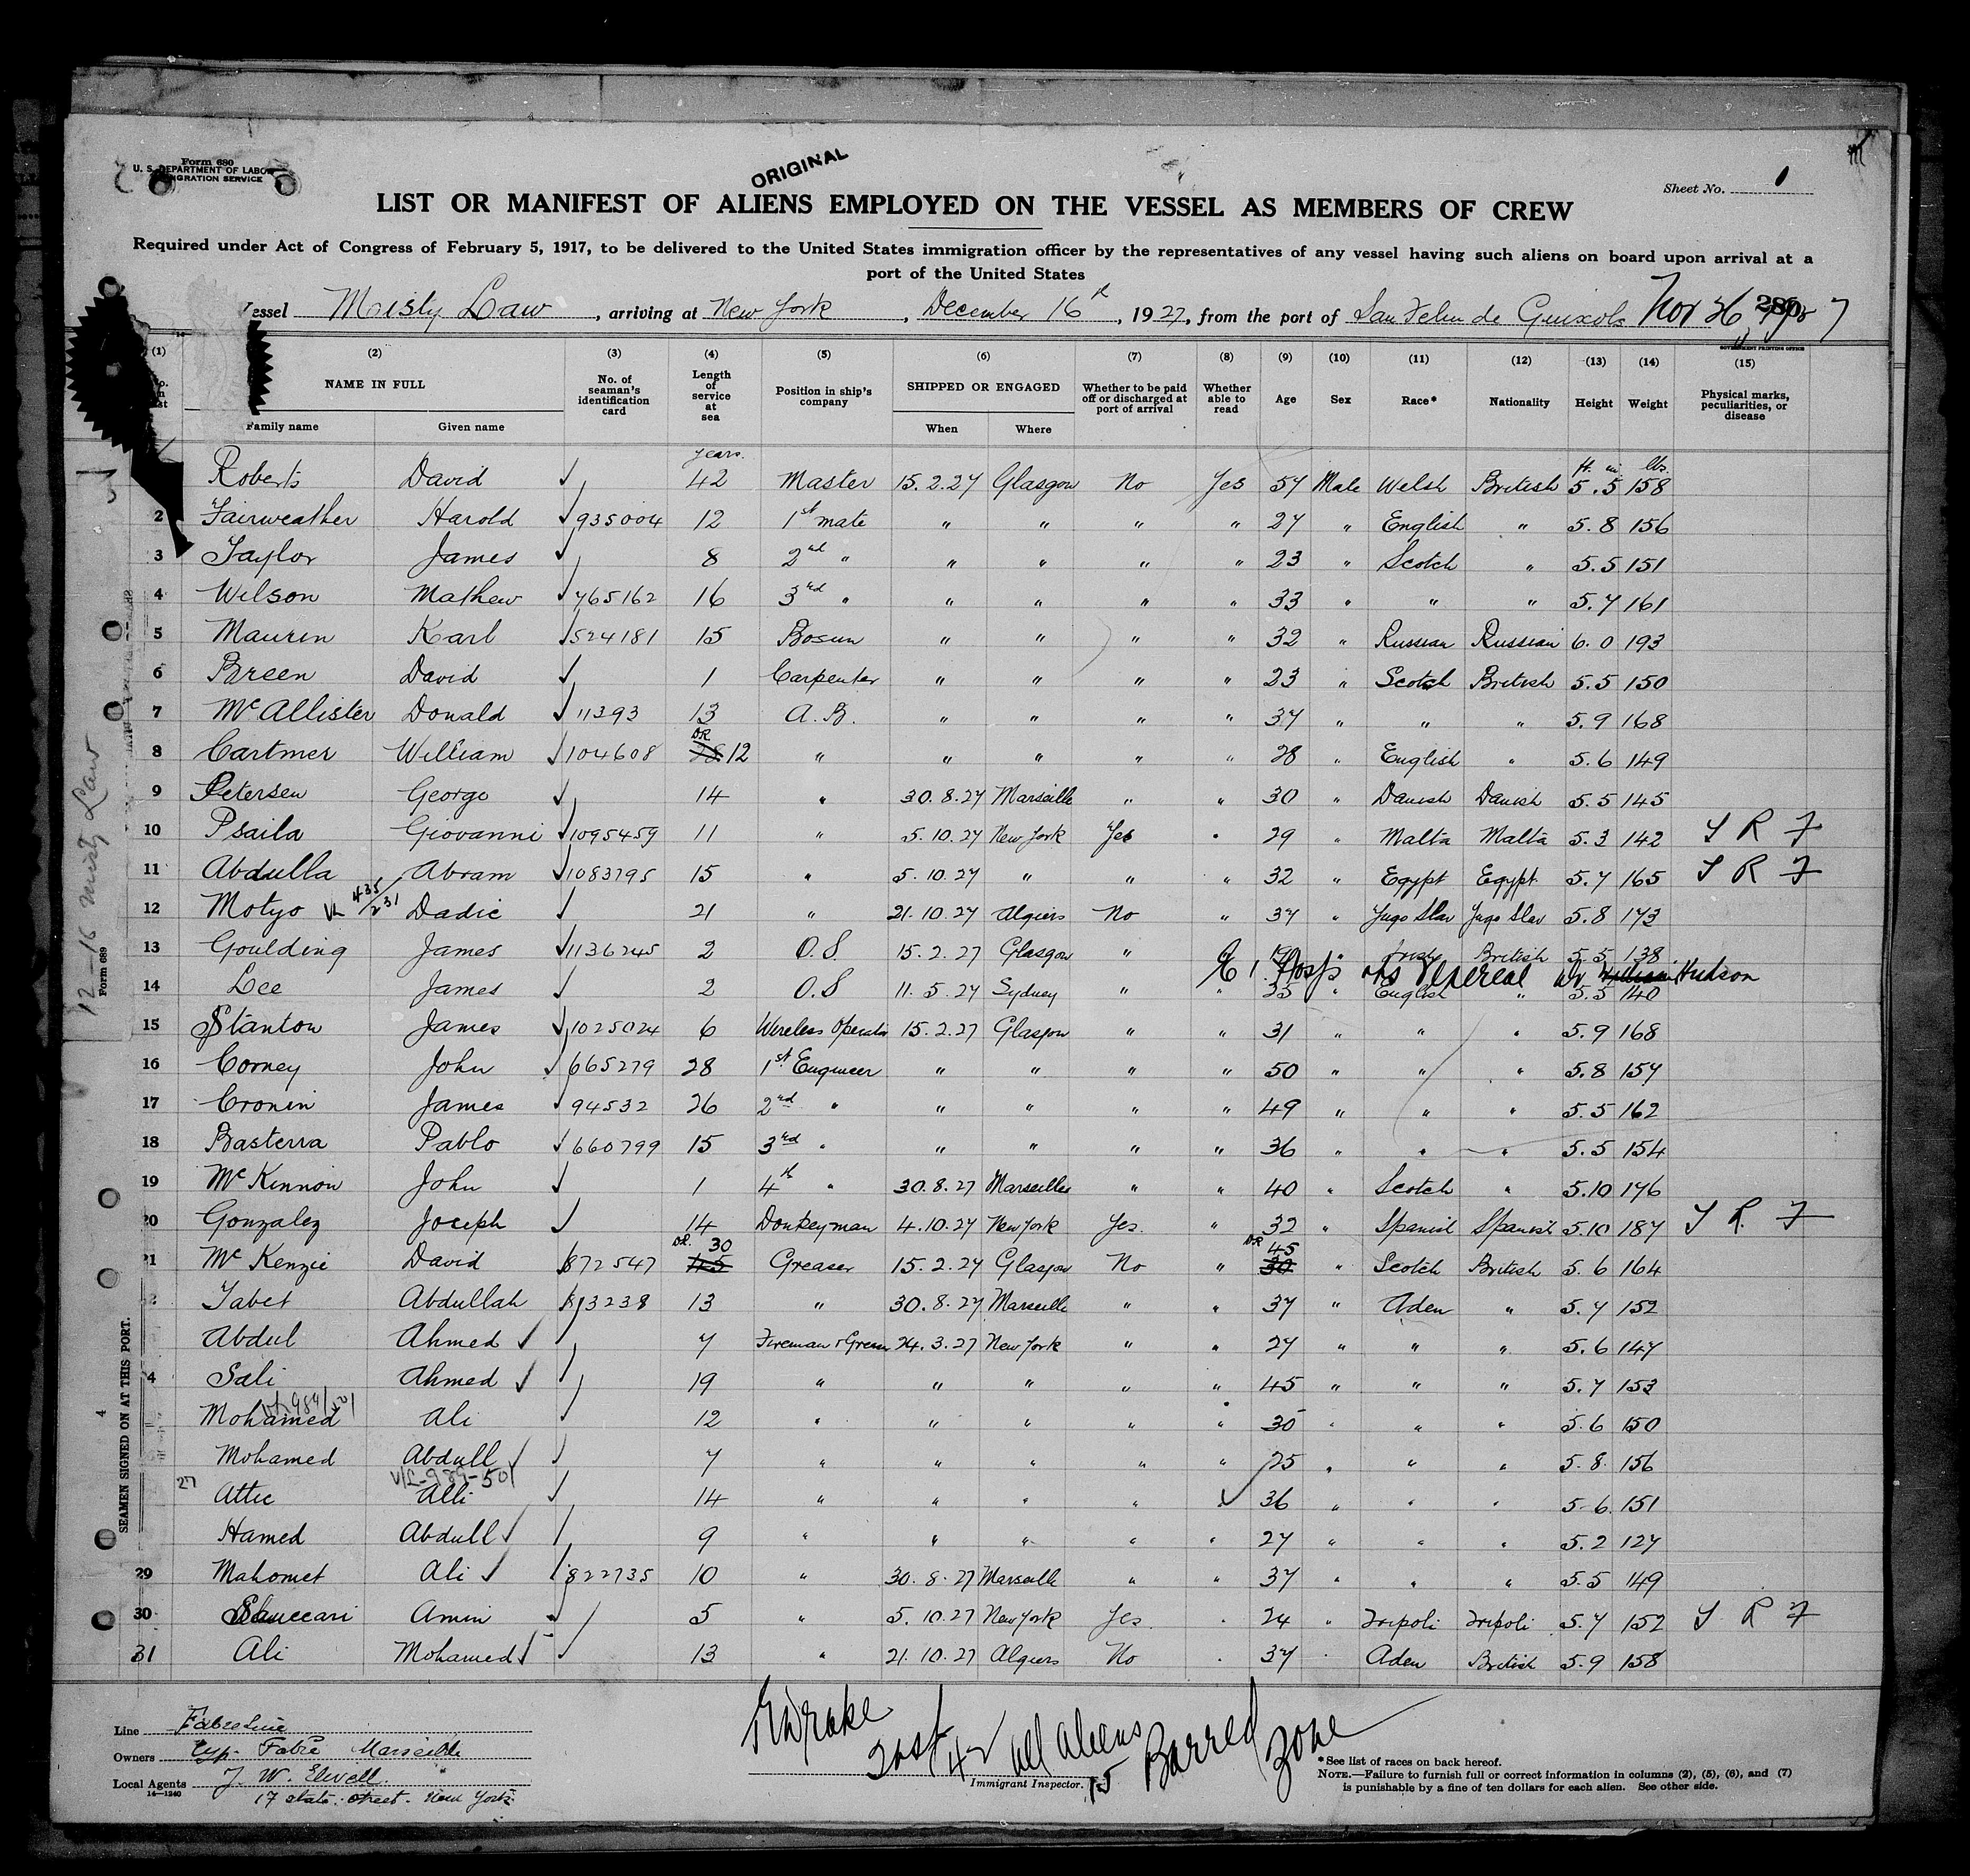 Form 680
U. S. DEPARTMENT OF LABOR
IMMIGRATION SERVICE
ORIGINAL
Sheet No. 1
LIST OR MANIFEST OF ALIENS EMPLOYED ON THE VESSEL AS MEMBERS OF CREW
Required under Act of Congress of February 5, 1917, to be delivered to the United States immigration officer by the representatives of any vessel having such aliens on board upon arrival at a
port of the United States
Vessel Misty Law, arriving at New York, December 16th, 1927, from the port of San Feliu de Guixols Nov 26
GOVERNMENT PRINTING OFFICE
(1) (2) (3) (4) (5) (6) (7) (8) (9) (10) (11) (12) (13) (14) (15)
NAME IN FULL Family name Given name No. of seaman's identification card Length of service at sea Position in ship's company SHIPPED OR ENGAGED When Where Whether to be paid off or discharged at port of arrival Whether able to read Age Sex Race* Nationality Height Weight Physical marks, peculiarities, or disease
years. ft. in lbs.
Roberts David 42 Master 15.2.27 Glasgow No Yes 57 Male Welsh British 5.5 158
2 Fairweather Harold 935004 12 1st mate " " " " 27 " English " 5.8 156
3 Taylor James 8 2nd " " " " " 23 " Scotch " 5.5 151
4 Wilson Mathew 765162 16 3rd " " " " " 33 " " " 5.7 161
5 Mauren Karl 524181 15 Bosun " " " " 32 " Russian Russian 6.0 193
6 Breen David 1 Carpenter " " " " 23 " Scotch British 5.5 150
7 McAllister Donald 11393 13 A.B. " " " " 37 " " " 5.9 168
8 Cartmer William 104608 DR 12 " " " " " 28 " English " 5.6 149
9 Petersen George 14 " 30.8.27 Marseille " " 30 " Danish Danish 5.5 145
10 Psaila Giovanni 1095459 11 " 5.10.27 New York Yes " 29 " Malta Malta 5.3 142
11 Abdulla Abram 1083795 15 " 5.10.27 " " " 32 " Egypt Egypt 5.7 165
12 Motyo Dadic 21 " 21.10.27 Algiers No " 37 " Jugo Slav Jugo Slav 5.8 173
13 Goulding James 1136245 2 O.S. 15.2.27 Glasgow " " 19 " Irish British 5.5 138
E I Hosp obs Venereal Dr Hudson
14 Lee James 2 O.S 11.5.27 Sydney " " 25 " English " 5.5 140
15 Stanton James 1025024 6 Wireless Operator 15.2.27 Glasgow " " 31 " " " 5.9 168
16 Corney John 665279 28 1st Engineer " " " " 50 " " " 5.8 157
17 Cronin James 94532 26 2nd " " " " " 49 " " " 5.5 162
18 Basterra Pablo 660799 15 3rd " " " " " 36 " " " 5.5 154
19 McKinnon John 1 4th " 30.8.27 Marseilles " " 40 " Scotch " 5.10 176
20 Gonzalez Joseph 14 Donkeyman 4.10.27 New York Yes " 32 " Spanish Spanish 5.10 187
21 McKenzie David 872547 DR. 30 45 Greaser 15.2.27 Glasgow No " DR 45 30 " Scotch British 5.6 164
Tabet Abdullah 13 " 30.8.27 Marseille " " 37 " Aden " 5.7 152
Abdul Ahmed 7 Fireman & Greaser 24.3.27 New York " " 27 " " " 5.6 147
4 Sali Ahmed 19 " " " " " 45 " " " 5.7 153
Mohamed Ali 12 " " " " " 30 " " " 5.6 150
Mohamed Abdull 7 " " " " " 25 " " " 5.8 156
27 Attie Alli 14 " " " " 36 " " " 5-6 151
Hamed Abdull 9 " " " " " 27 " " " 5.2 127
29 Mahomet Ali 822735 10 " 30.8.27 Marseille " " 37 " " " 5.5 149
30 Amin 5 " 5.10.27 New York Yes " 24 " Tripoli Tripoli 5.7 152
31 Ali Mohamed 13 " 21.10.27 Algiers No " 37 " Aden British 5.9 158
12-16 Misty Law
Form 689
SEAMEN SIGNED ON AT THIS PORT. 4
Line Fabre Line
Owners Cyp. Fabre Marseille
Local Agents J. W. Elwell.
14-1240
17 State street. New York
all aliens
15 Barred Zone
Immigrant Inspector.
*See list of races on back hereof.
NOTE.—Failure to furnish full or correct information in columns (2), (5), (6), and (7)
is punishable by a fine of ten dollars for each alien. See other side.